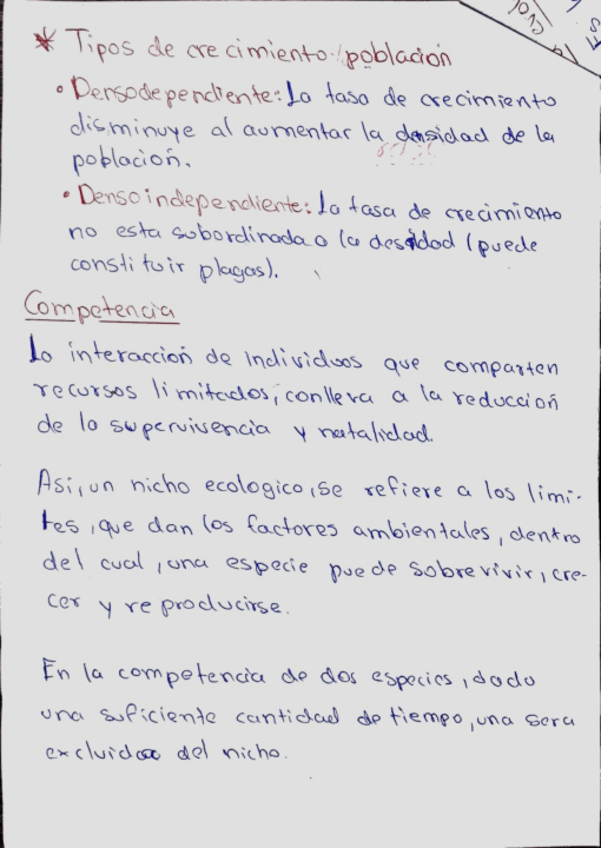 * Tipos de crecimiento/población
• Densodependiente: La tasa de crecimiento
disminuye al aumentar la densidad de la
población.
• Densoindependiente: La tasa de crecimiento
no esta subordinada a la desidad (puede
constituir plagas).
Competencia
La interacción de individuos que comparten
recursos limitados, conlleva a la reducción
de la supervivencia y natalidad.
Asi, un nicho ecologico, se refiere a los limi-
tes, que dan los factores ambientales, dentro
del cual, una especie puede sobrevivir, cre-
cer y reproducirse.
En la competencia de dos especies, dado
una suficiente cantidad de tiempo, una sera
excluida del nicho.